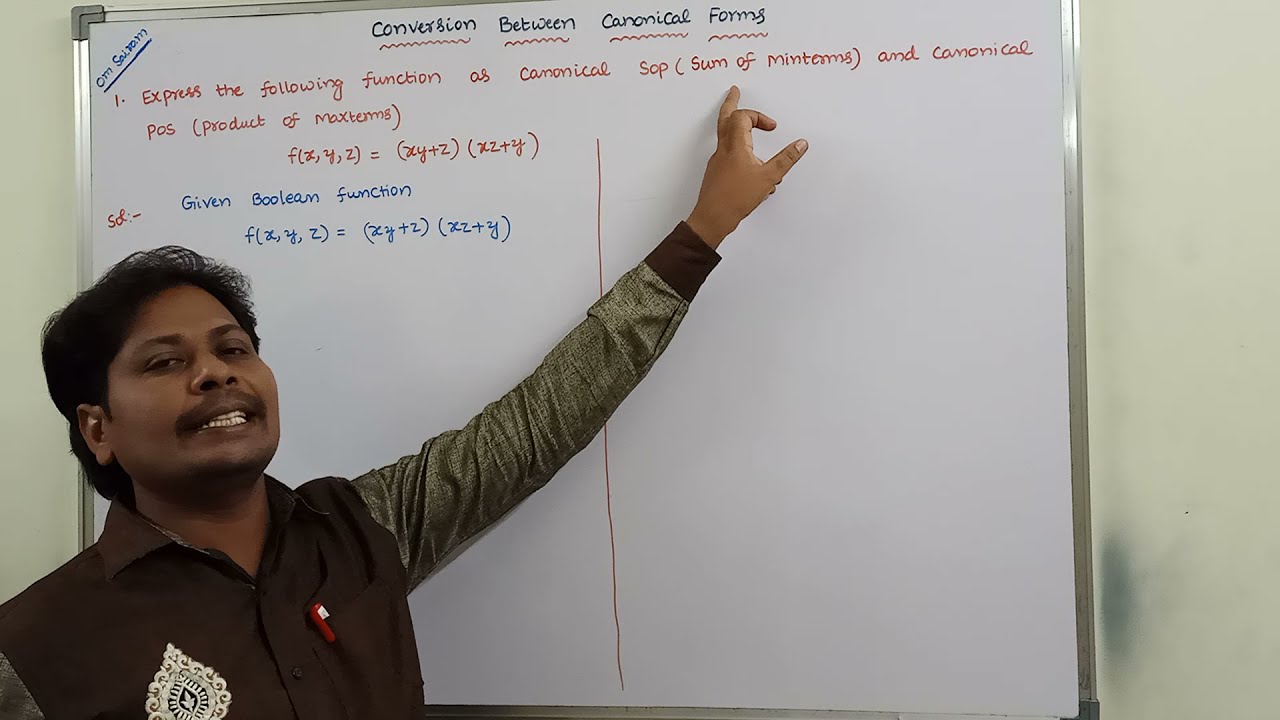 Conversion Between Canonical Forms
Om Sairam
1. Express the following function as canonical SOP (Sum of Minterms) and canonical
POS (product of Maxterms)
f(x, y, z) = (xy+z) (xz+y)
Sol:- Given Boolean function
f(x, y, z) = (xy+z) (xz+y)